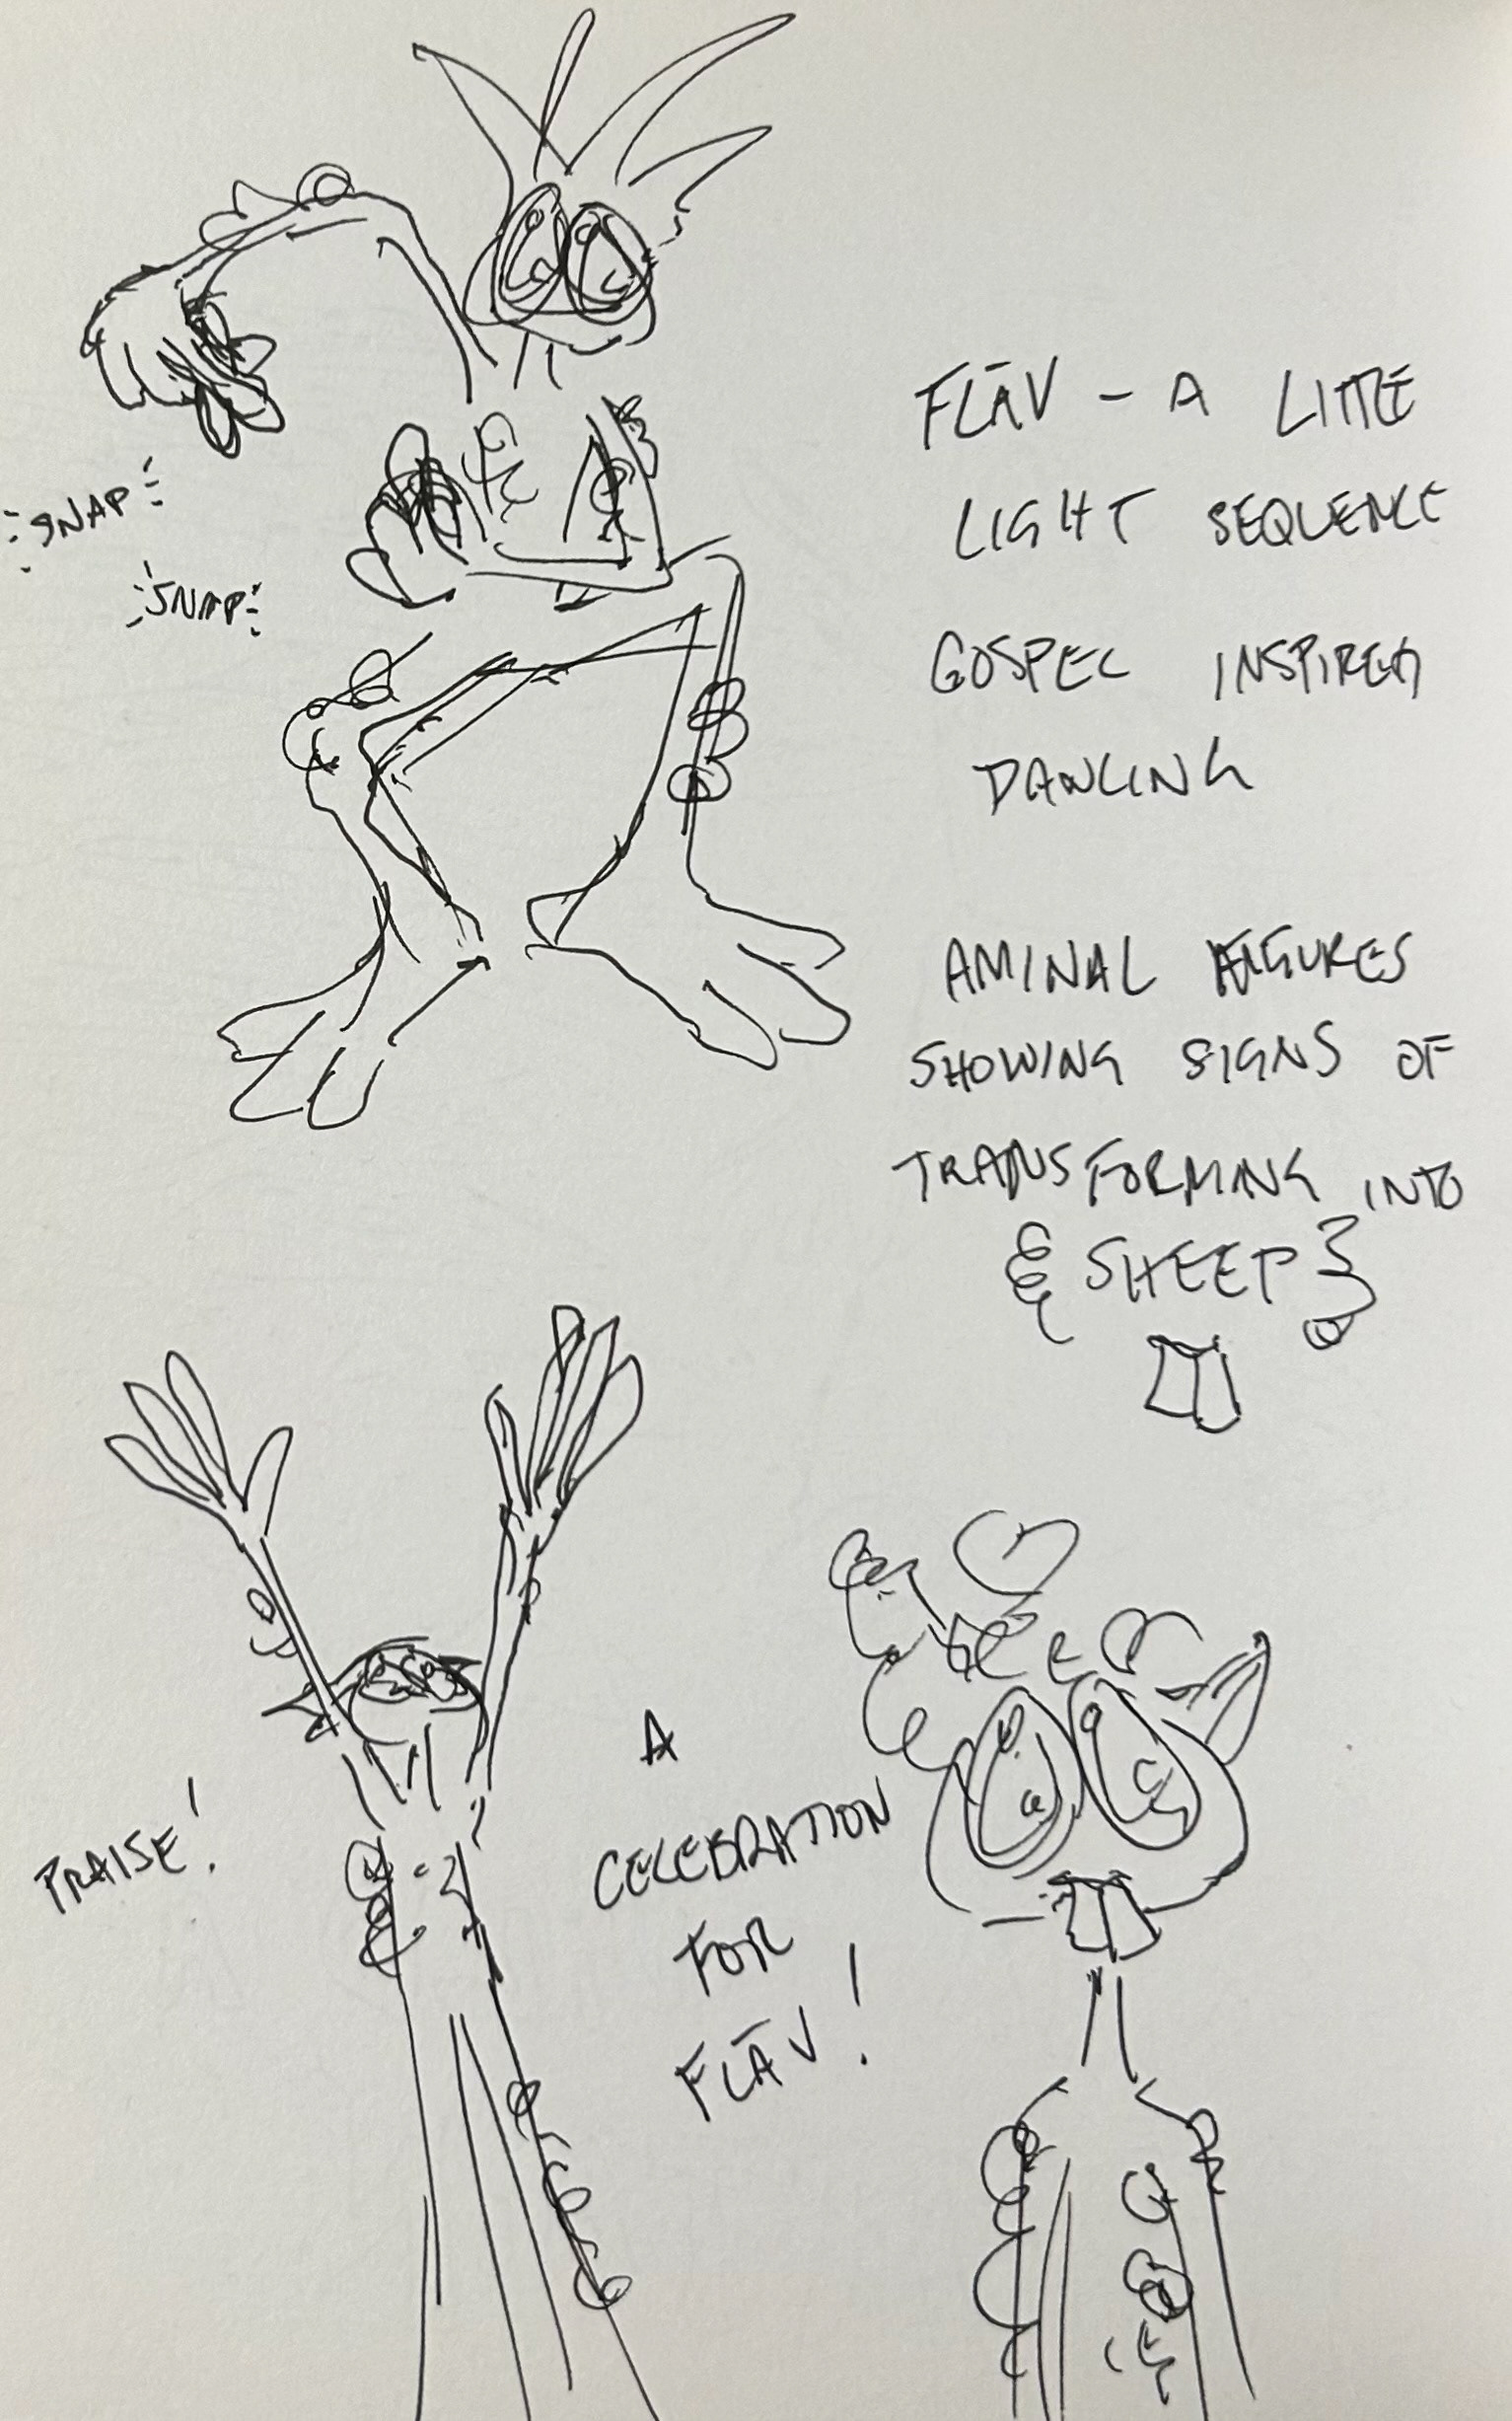 FLĀV - A LITTLE
LIGHT SEQUENCE
GOSPEL INSPIRED
DANCING
SNAP
SNAP
AMINAL FIGURES
SHOWING SIGNS OF
TRANSFORMING INTO
SHEEP
PRAISE!
A
CELEBRATION
FOR
FLĀV!